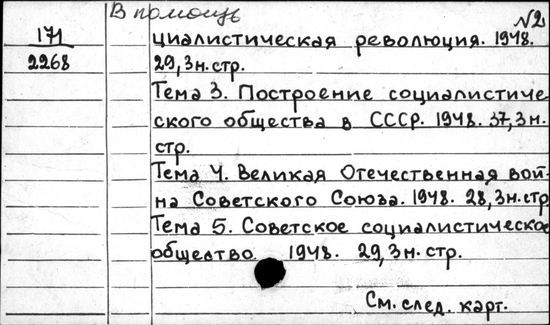 В помощь
№2
171
2268
циалистическая революция. 1948.
29,3н.стр.
Тема 3. Построение социалистиче
ского общества в СССР. 1948. 37,3н.
стр.
Тема 4. Великая Отечественная вой-
на Советского Союза. 1948. 28,3н.стр
Тема 5. Советское социалистическое
общество 1948. 29,3н.стр.
См. след. карт.